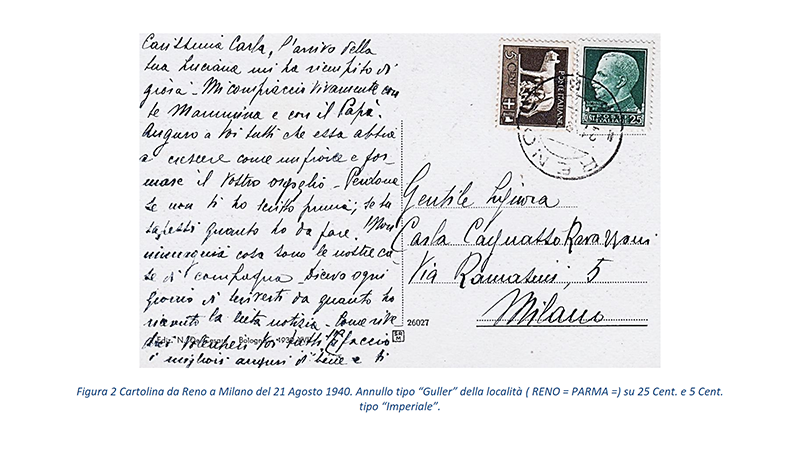 Carissima Carla, l'arrivo della
tua Luciana mi ha riempito di
gioia - Mi compiaccio vivamente con
te Mammina e con il Papà.
Auguro a Voi tutti che essa abbia
a crescere come un fiore e for-
mare il Vostro orgoglio - Perdona
se non ti ho scritto prima; se tu
sapessi quanto ho da fare! Non
cosa sono le nostre ca-
se di campagna - Dicevo ogni
giorno di scriverti da quanto ho
ricevuto la lieta notizia - Come
tutti faccio
i migliori auguri di bene e ti
5 CENT.
POSTE ITALIANE
25
RENO
Gentile Signora
Carla Cagnasso Ravazzoni
Via Ramazzini, 5
Milano
26027
Ediz. N. De Bologna
Figura 2 Cartolina da Reno a Milano del 21 Agosto 1940. Annullo tipo “Guller” della località ( RENO = PARMA =) su 25 Cent. e 5 Cent.
tipo “Imperiale”.